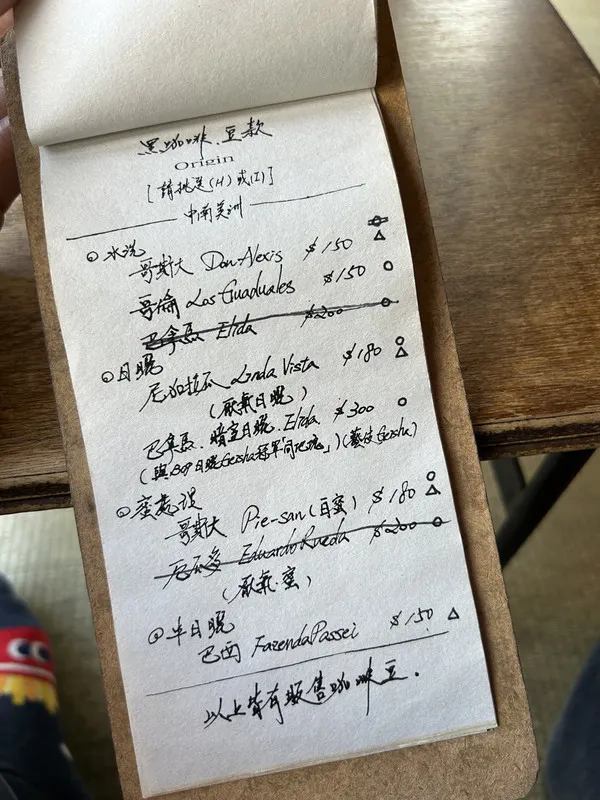 黑咖啡.豆款
Origin
[請挑選(H)或(I)]
中南美洲
水洗
哥斯大 Don Alexis $150
哥倫 Los Guaduales $150
巴拿馬 Elida $200
日曬
尼加拉瓜 Linda Vista $180
(厭氧日曬)
巴拿馬.暗室日曬.Elida $300
(與BOP日曬Geisha冠軍同地塊」)(藝伎Geisha)
蜜處理
哥斯大 Pie-san(白蜜) $180
Eduardo Rueda $200
(厭氧.蜜)
半日曬
巴西 Fazenda Passei $150
以上皆有販售咖啡豆.